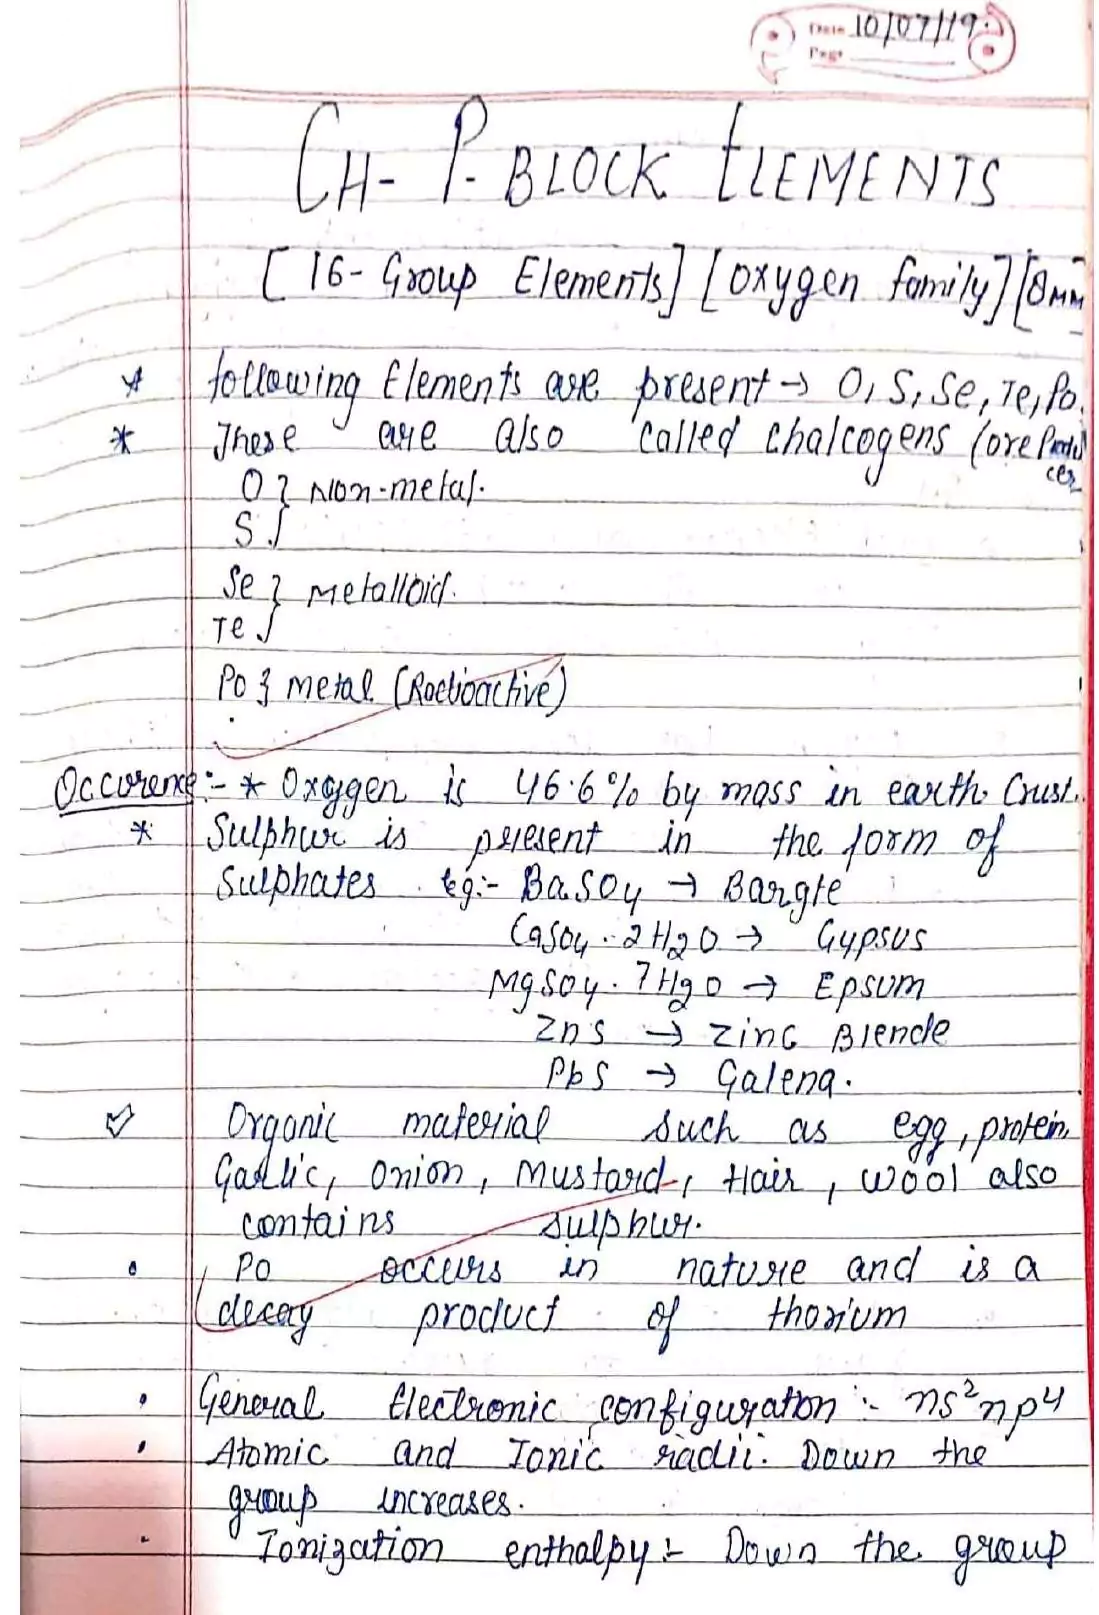 Date 10/07/19
Page
CH- P-BLOCK ELEMENTS
[16-Group Elements] [Oxygen family] [8 MM]
* following Elements are present → O, S, Se, Te, Po.
* These are also called chalcogens (ore Produ
cer
O } Non-metal.
S }
Se } Metalloid.
Te }
Po } metal (Radioactive)
Occurence:- * Oxygen is 46.6% by mass in earth Crust.
* Sulphur is present in the form of
Sulphates eg:- BaSO4 → Baryte
CaSO4.2H2O → Gypsus
MgSO4.7H2O → Epsum
ZnS → Zinc Blende
PbS → Galena.
Organic material such as egg, protein,
Garlic, onion, Mustard, Hair, wool also
contains sulphur.
• Po occurs in nature and is a
decay product of thorium
• General Electronic configuration :- ns²np4
• Atomic and Ionic radii: Down the
group increases.
• Ionization enthalpy:- Down the group